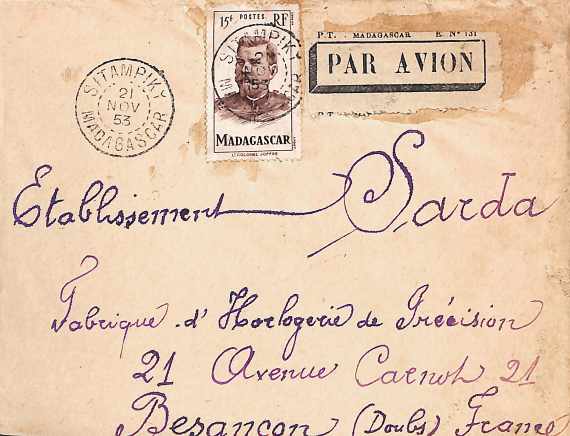 15f POSTES RF
SITAMPIKY
MADAGASCAR
LT COLONEL JOFFRE
P.T. - MADAGASCAR E. Nº 131
PAR AVION
SITAMPIKY
21
NOV
53
MADAGASCAR
Etablissement Sarda
Fabrique d'Horlogerie de Précision
21 Avenue Carnot 21
Besançon (Doubs) France